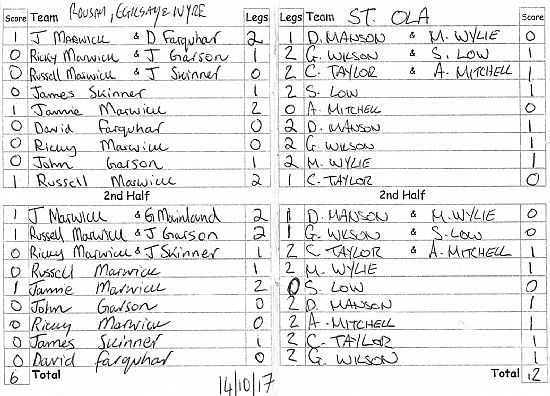 Score Team ROUSAY, EGILSAY & WYRE Legs Legs Team ST. OLA Score
1 J MARWICK & D Farquhar 2 1 D. MANSON & M. WYLIE 0
0 Ricky Marwick & J Garson 1 2 G. WILSON & S. LOW 1
0 Russell Marwick & J Skinner 0 2 C. TAYLOR & A. MITCHELL 1
0 James Skinner 1 2 S. LOW 1
1 Jamie Marwick 2 0 A. MITCHELL 0
0 David Farquhar 0 2 D. MANSON 1
0 Ricky Marwick 0 2 G. WILSON 1
0 John Garson 1 2 M. WYLIE 1
1 Russell Marwick 2 1 C. TAYLOR 0
2nd Half 2nd Half
1 J Marwick & G Mainland 2 1 D. MANSON & M. WYLIE 0
1 Russell Marwick & J Garson 2 1 G. WILSON & S. LOW 0
0 Ricky Marwick & J Skinner 1 2 C TAYLOR & A. MITCHELL 1
0 Russell Marwick 1 2 M. WYLIE 1
1 Jamie Marwick 2 0 S. LOW 0
0 John Garson 0 2 D. MANSON 1
0 Ricky Marwick 0 2 A. MITCHELL 1
0 James Skinner 1 2 C. TAYLOR 1
0 David Farquhar 0 2 G. WILSON 1
6 Total Total 12
14/10/17